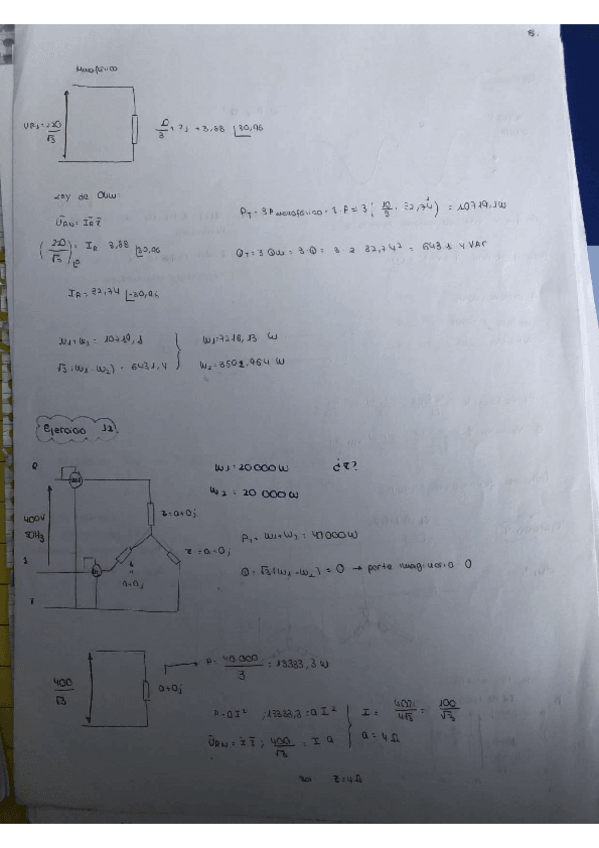 8.
Monofásico
URN = 220/√3
10/3 + 2j = 3,88 ∠30,96
Ley de Ohm:
ŪRN = Ī·R Z̄
(220/√3)∠0 = IR 3,88 ∠30,96
IR = 32,74 ∠-30,96
PT = 3 Pmonofásico = 3·P = 3 (10/3 · 32,74²) = 10719,1W
QT = 3 QM = 3·Q = 3·2 32,74² = 6431,4 VAr
W1 + W2 = 10719,1
√3·(W1-W2) = 6431,4
W1 = 7216,13 W
W2 = 3502,964 W
Ejercicio 12
R
400V
50Hz
S
T
Z = a+0j
Z = a+0j
a+0j
W1 = 20 000 W
¿Z?
W2 = 20 000 W
PT = W1+W2 = 40000W
Q = √3(W1-W2) = 0 → parte imaginaria 0
400/√3
a+0j
P = 40 000/3 = 13333,3 W
P = aI² ; 13333,3 = aI²
ŪRN = Ī Z̄ ; 400/√3 = I a
I = 400/4√3 = 100/√3
a = 4Ω
Z = 4Ω